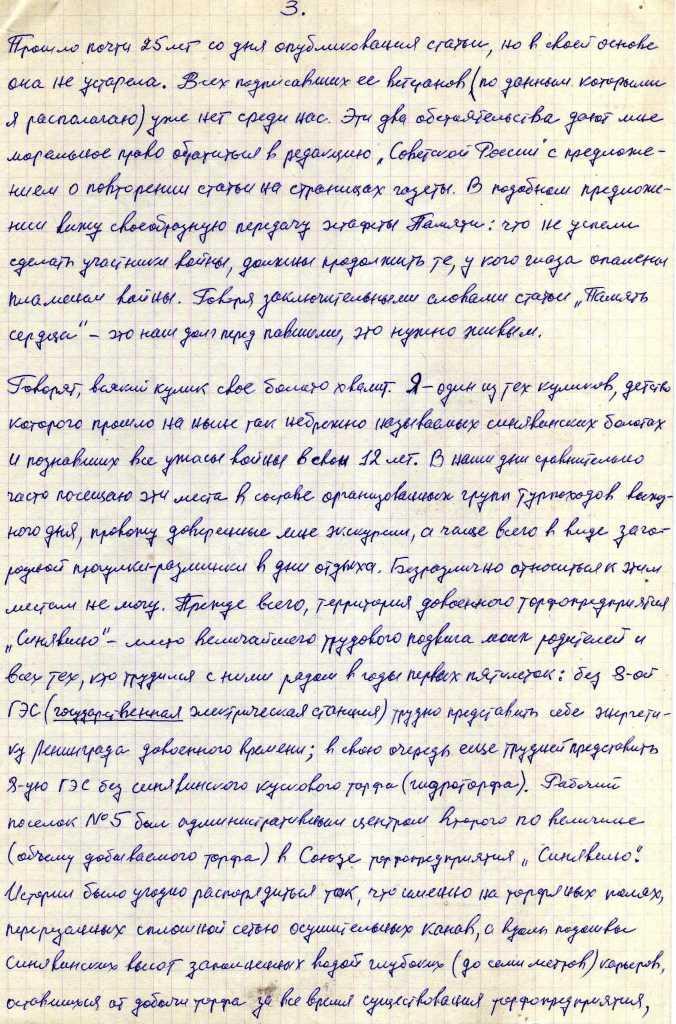 3.
Прошло почти 25 лет со дня опубликования статьи, но в своей основе
она не устарела. Всех подписавших ее ветеранов (по данным которыми
я располагаю) уже нет среди нас. Эти два обстоятельства дают мне
моральное право обратиться в редакцию „Советской России" с предложе-
нием о повторении статьи на страницах газеты. В подобном предложе-
нии вижу своеобразную передачу эстафеты Памяти: что не успели
сделать участники войны, должны продолжить те, у кого глаза опалены
пламенем войны. Говоря заключительными словами статьи „Память
сердца" – это наш долг перед павшими, это нужно живым.
Говорят, всякий кулик свое болото хвалит. Я – один из тех куликов, детство
которого прошло на ныне так небрежно называемых синявинских болотах
и познавших все ужасы войны в свои 12 лет. В наши дни сравнительно
часто посещаю эти места в составе организованных групп турпоходов выход-
ного дня, провожу доверенные мне экскурсии, а чаще всего в виде заго-
родной прогулки-разминки в дни отдыха. Безразлично относиться к этим
местам не могу. Прежде всего, территория довоенного торфопредприятия
„Синявино" – место величайшего трудового подвига моих родителей и
всех тех, кто трудился с ними рядом в годы первых пятилеток: без 8-ой
ГЭС (государственная электрическая станция) трудно представить себе энергети-
ку Ленинграда довоенного времени; в свою очередь еще трудней представить
8-ую ГЭС без синявинского кускового торфа (гидроторфа). Рабочий
поселок №5 был административным центром второго по величине
(объему добываемого торфа) в Союзе торфопредприятия „Синявино".
Истории было угодно распорядиться так, что именно на торфяных полях,
перерезанных сплошной сетью осушительных канав, а вдоль подошвы
синявинских высот заполненных водой глубоких (до семи метров) карьеров,
оставшихся от добычи торфа за все время существования торфопредприятия,